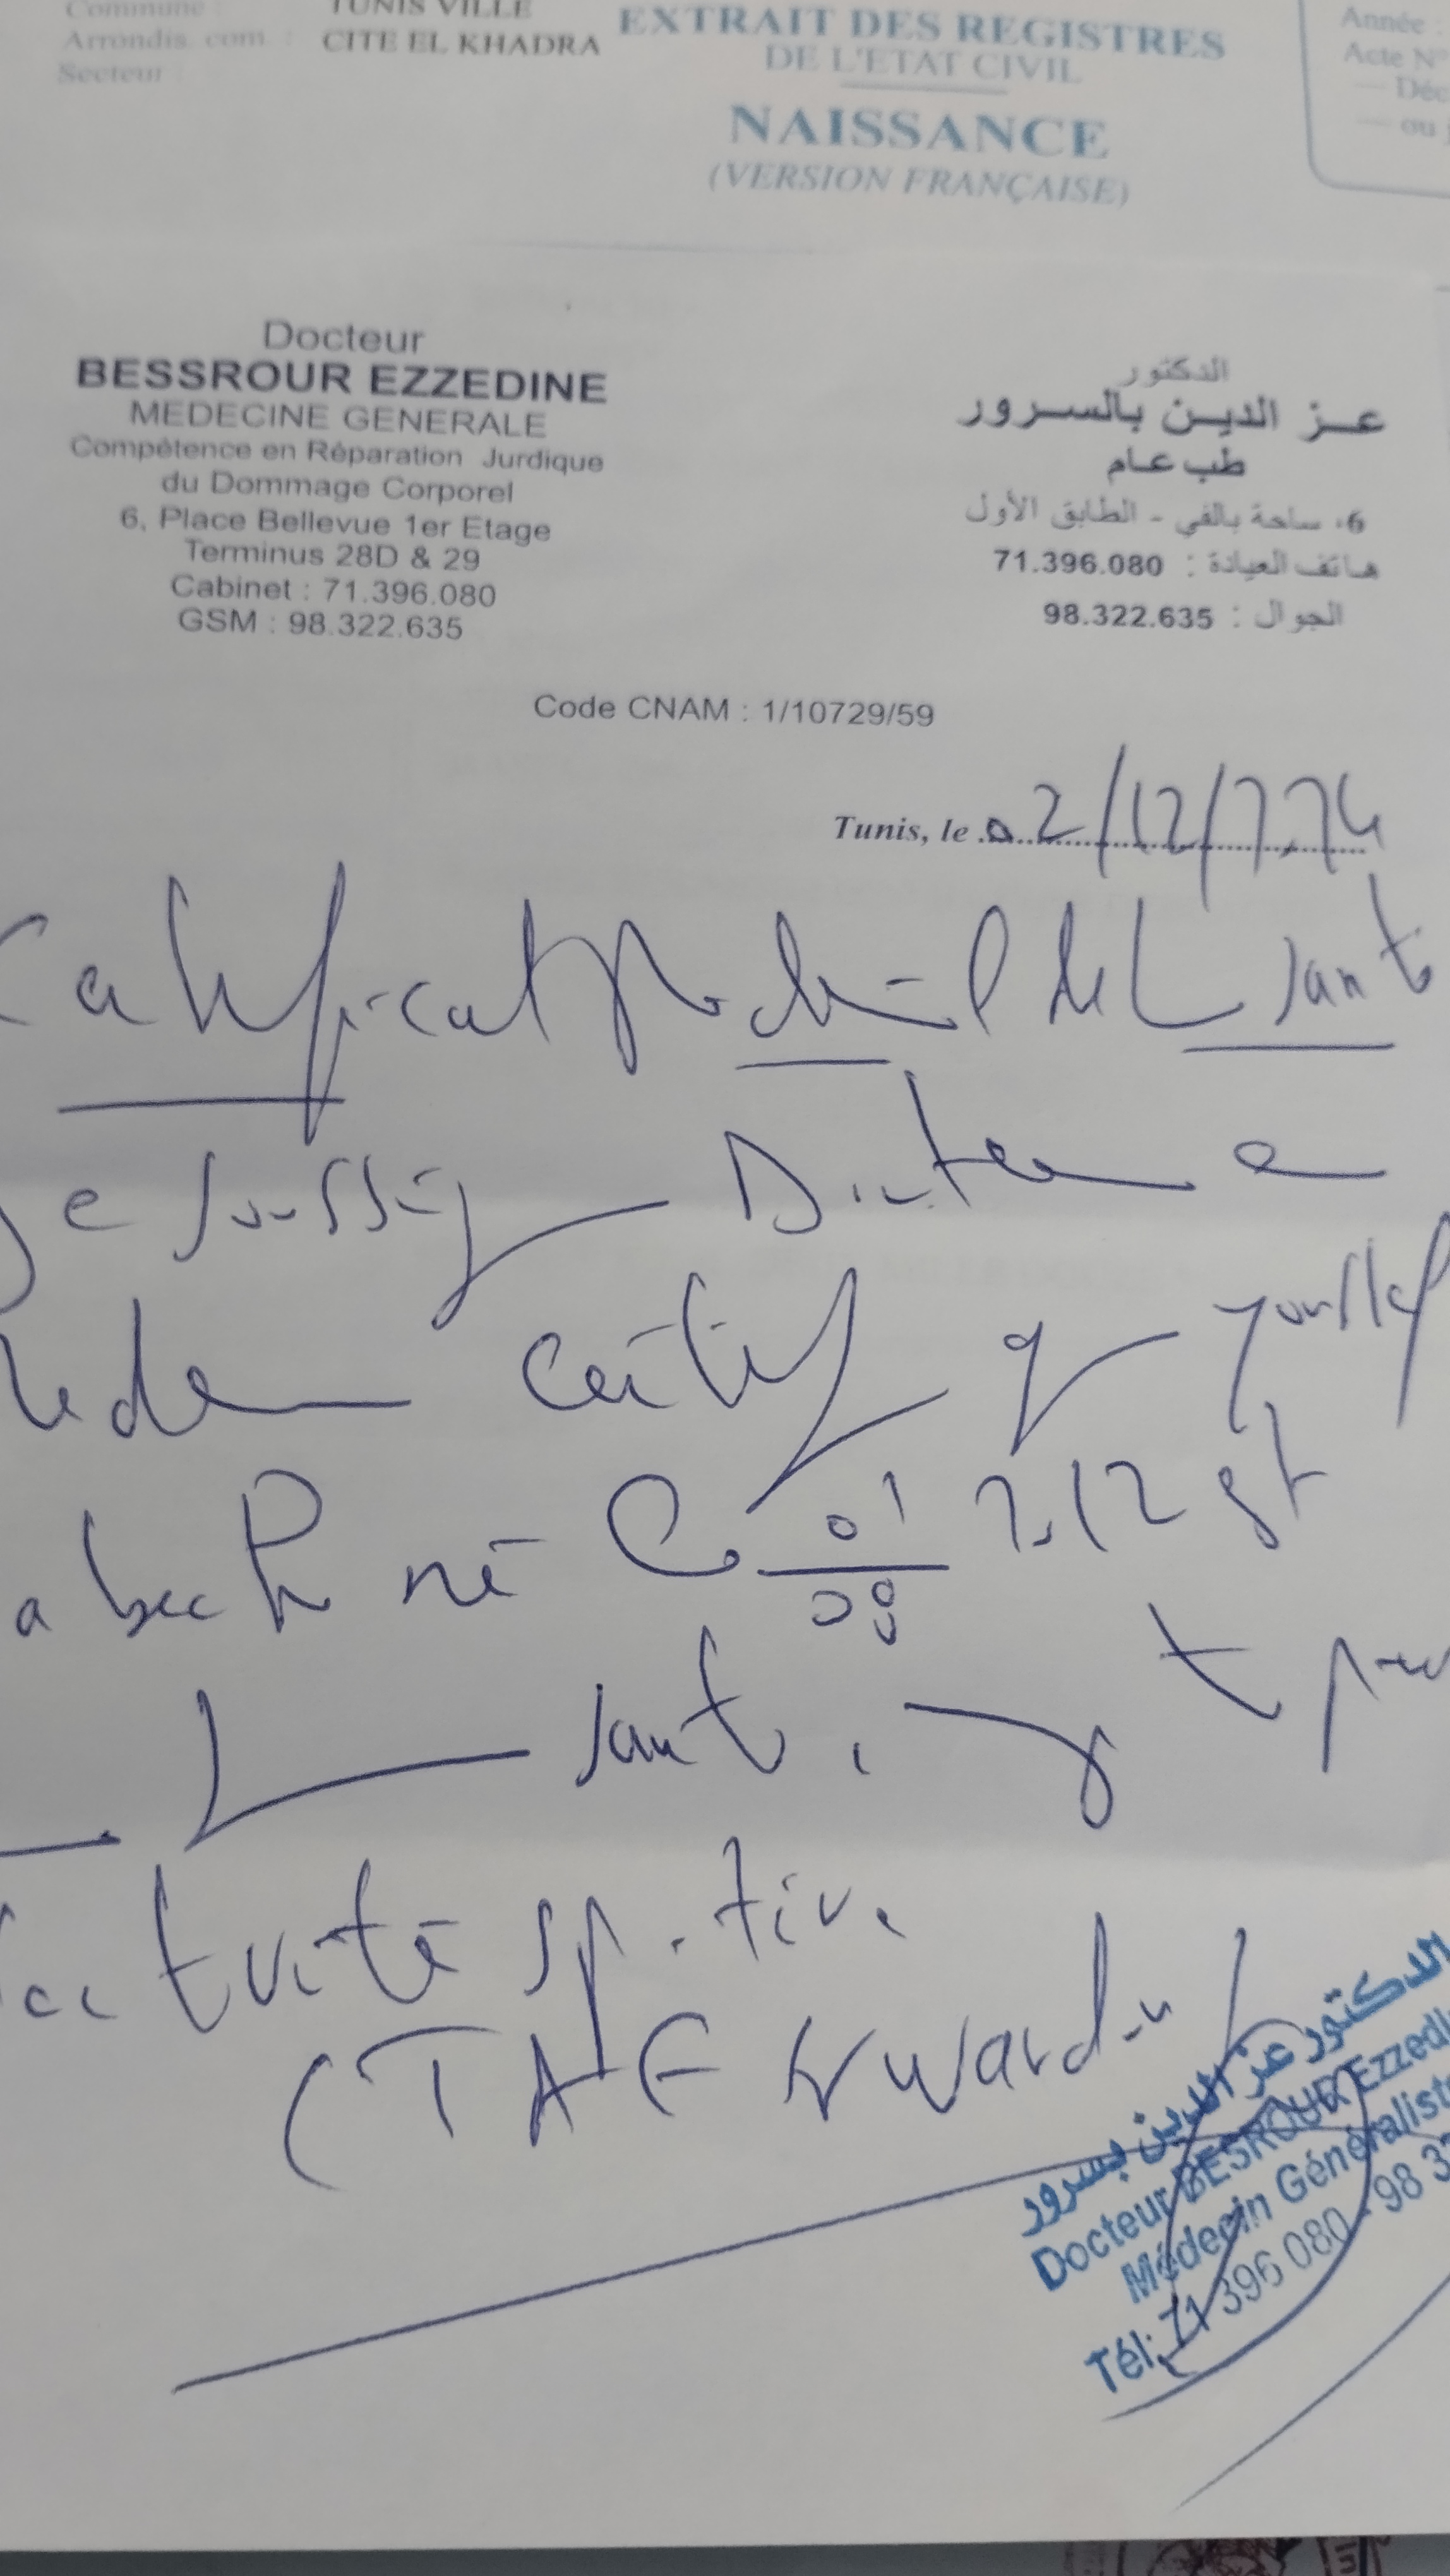 Commune :
TUNIS VILLE
Arrondis. com. : CITE EL KHADRA
Secteur :
EXTRAIT DES REGISTRES
DE L'ETAT CIVIL
NAISSANCE
(VERSION FRANÇAISE)
Année :
Acte N°
— Déc
— ou
Docteur
BESSROUR EZZEDINE
MEDECINE GENERALE
Compétence en Réparation Jurdique
du Dommage Corporel
6, Place Bellevue 1er Etage
Terminus 28D & 29
Cabinet : 71.396.080
GSM : 98.322.635
الدكتور
عز الدين بالسرور
طب عام
6، ساحة بالفي - الطابق الأول
هاتف العيادة : 71.396.080
الجوال : 98.322.635
Code CNAM : 1/10729/59
Tunis, le 02/12/
Certificat Médical de santé
Je soussigné Docteur en
médecine certifie que youssef
né le 01 2012 est
08
santé et peut
activité sportive
(TAE
الدكتور عز الدين بسرور
Docteur BESROUR Ezzedi
Médecin Généralist
Tél: 71 396 080 - 98 3